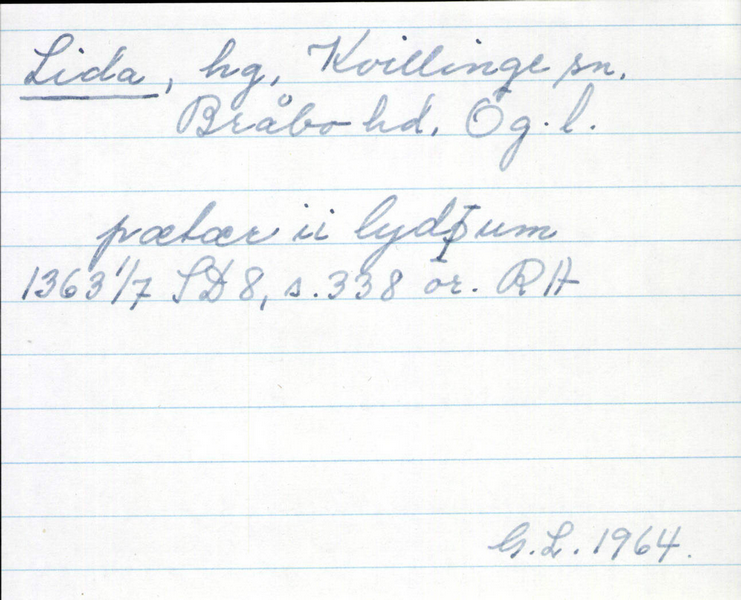 Lida, hg, Kvillinge sn,
Bråbo hd, Ög. l.
pætær ii lydþum
1363 1/7 SD 8, s. 338 or. RA
G. L. 1964.